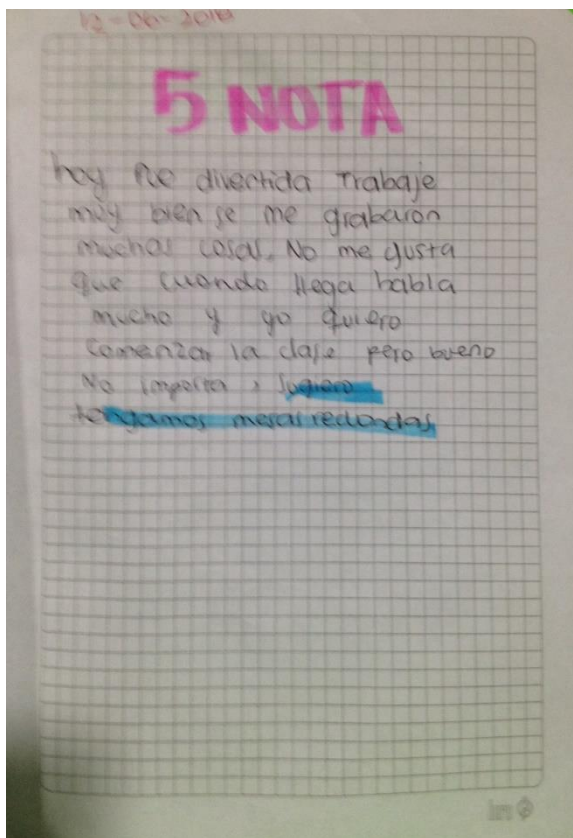 12-06-2018
5 NOTA
hoy fue divertida Trabaje
muy bien se me grabaron
muchas cosas. No me gusta
que cuando llega habla
mucho y yo quiero
comenzar la clase pero bueno
No importa, sugiero
tengamos mesas redondas